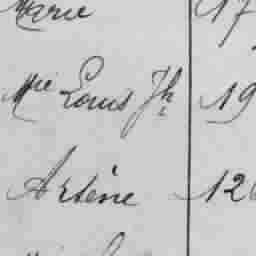 Marie 17
Mie Louis Jh 19
Arsène 12